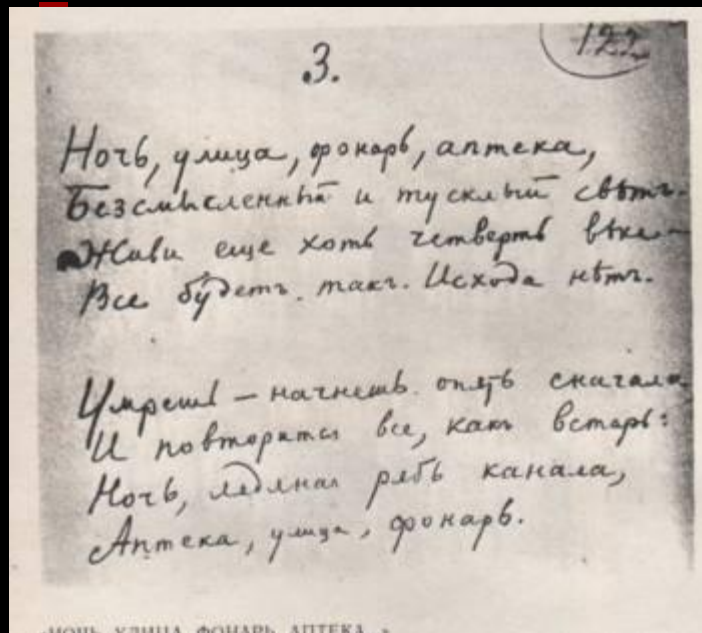 3.
122
Ночь, улица, фонарь, аптека,
Безсмысленный и тусклый свѣтъ.
Живи еще хоть четверть вѣка –
Все будетъ такъ. Исхода нѣтъ.
Умрешь – начнешь опять сначала
И повторится все, какъ встарь:
Ночь, ледяная рябь канала,
Аптека, улица, фонарь.
«НОЧЬ, УЛИЦА, ФОНАРЬ, АПТЕКА...»